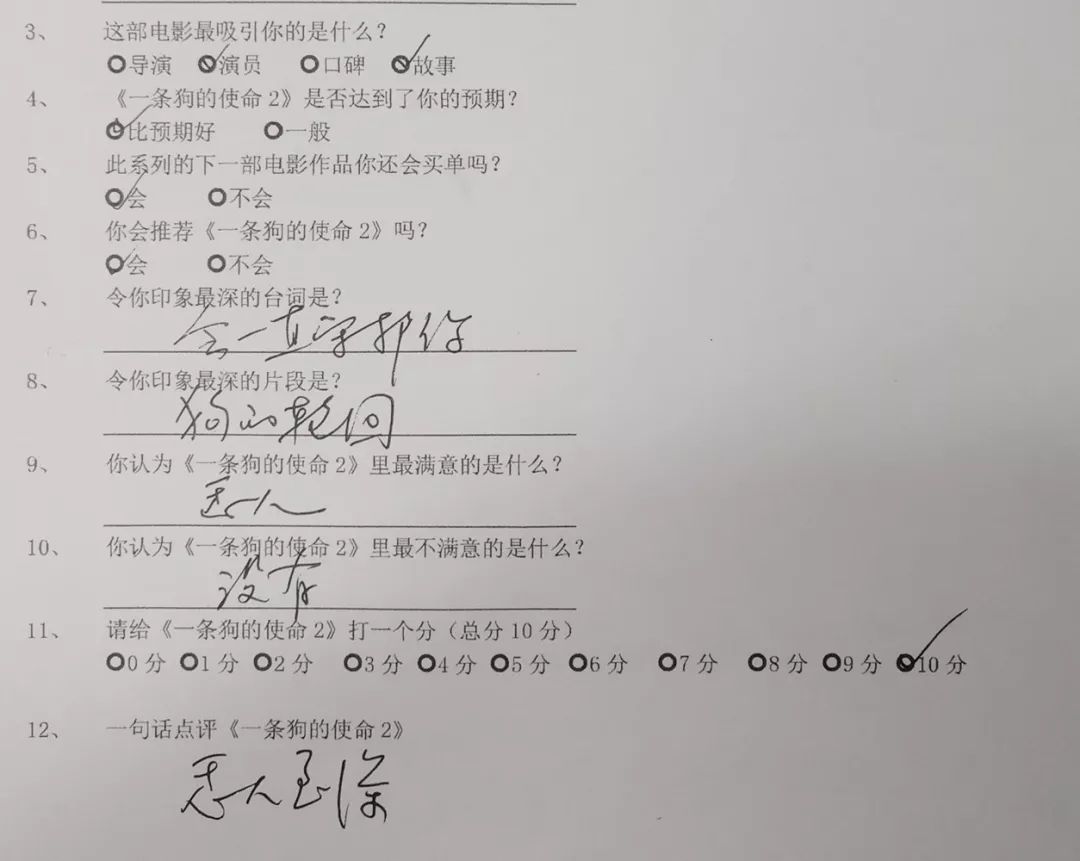 3、 这部电影最吸引你的是什么？
○导演 ○演员 ○口碑 ○故事
4、 《一条狗的使命2》是否达到了你的预期？
○比预期好 ○一般
5、 此系列的下一部电影作品你还会买单吗？
○会 ○不会
6、 你会推荐《一条狗的使命2》吗？
○会 ○不会
7、 令你印象最深的台词是？
会一直守护你
8、 令你印象最深的片段是？
狗的轮回
9、 你认为《一条狗的使命2》里最满意的是什么？
感人
10、 你认为《一条狗的使命2》里最不满意的是什么？
没有
11、 请给《一条狗的使命2》打一个分（总分10分）
○0分 ○1分 ○2分 ○3分 ○4分 ○5分 ○6分 ○7分 ○8分 ○9分 ○10分
12、 一句话点评《一条狗的使命2》
感人至深